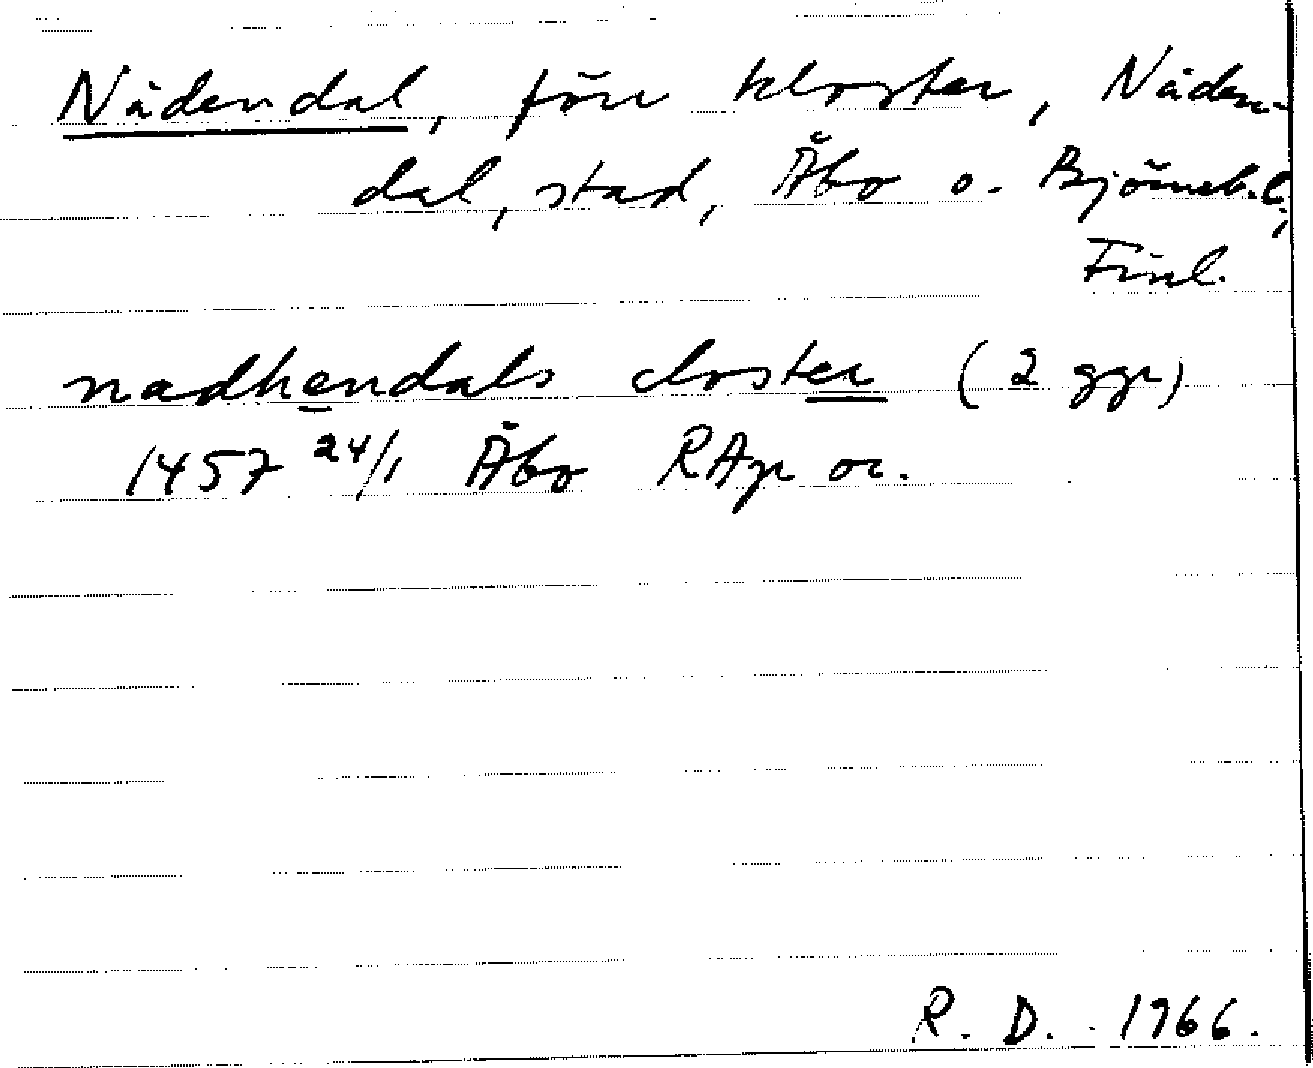 Nådendal, förr kloster, Nåden-
dal, stad, Åbo o. Björneb. l.,
Finl.
nadhendals closter (2 ggr)
1457 24/1 Åbo RAp or.
R. D. 1966.